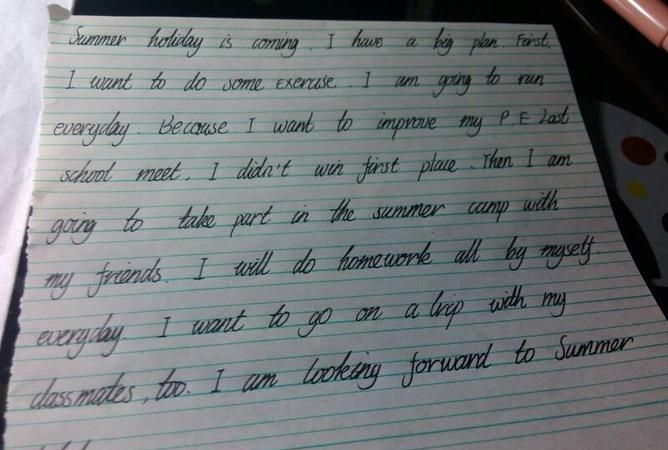 Summer holiday is coming. I have a big plan. First,
I want to do some exercise. I am going to run
everyday. Because I want to improve my P E Last
school meet, I didn't win first place. Then I am
going to take part in the summer camp with
my friends. I will do homework all by myself
everyday. I want to go on a trip with my
classmates, too. I am looking forward to Summer